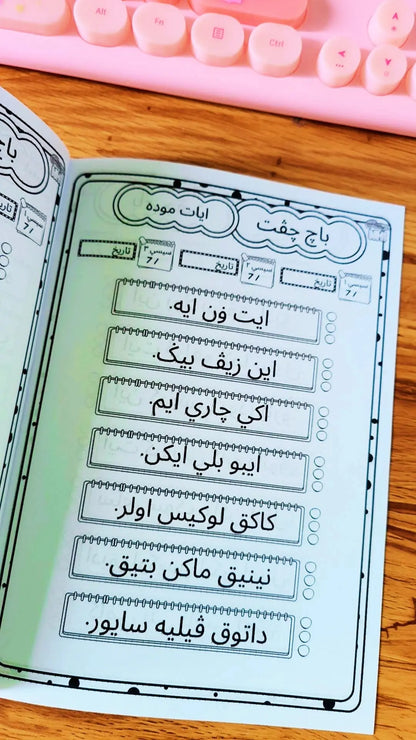 Alt Fn Ctrl
باچ چڤت
ايات موده
سيسي ١ /7 تاريخ
سيسي ٢ /7 تاريخ
سيسي ٣ /7 تاريخ
ايت ۏن ايه.
اين زيڤ بيݢ.
اکي چاري ايم.
ايبو بلي ايکن.
کاکق لوکيس اولر.
نينيق ماکن بتيق.
داتوق ڤيليه سايور.
باچ
سيسي ١ /7 تاريخ